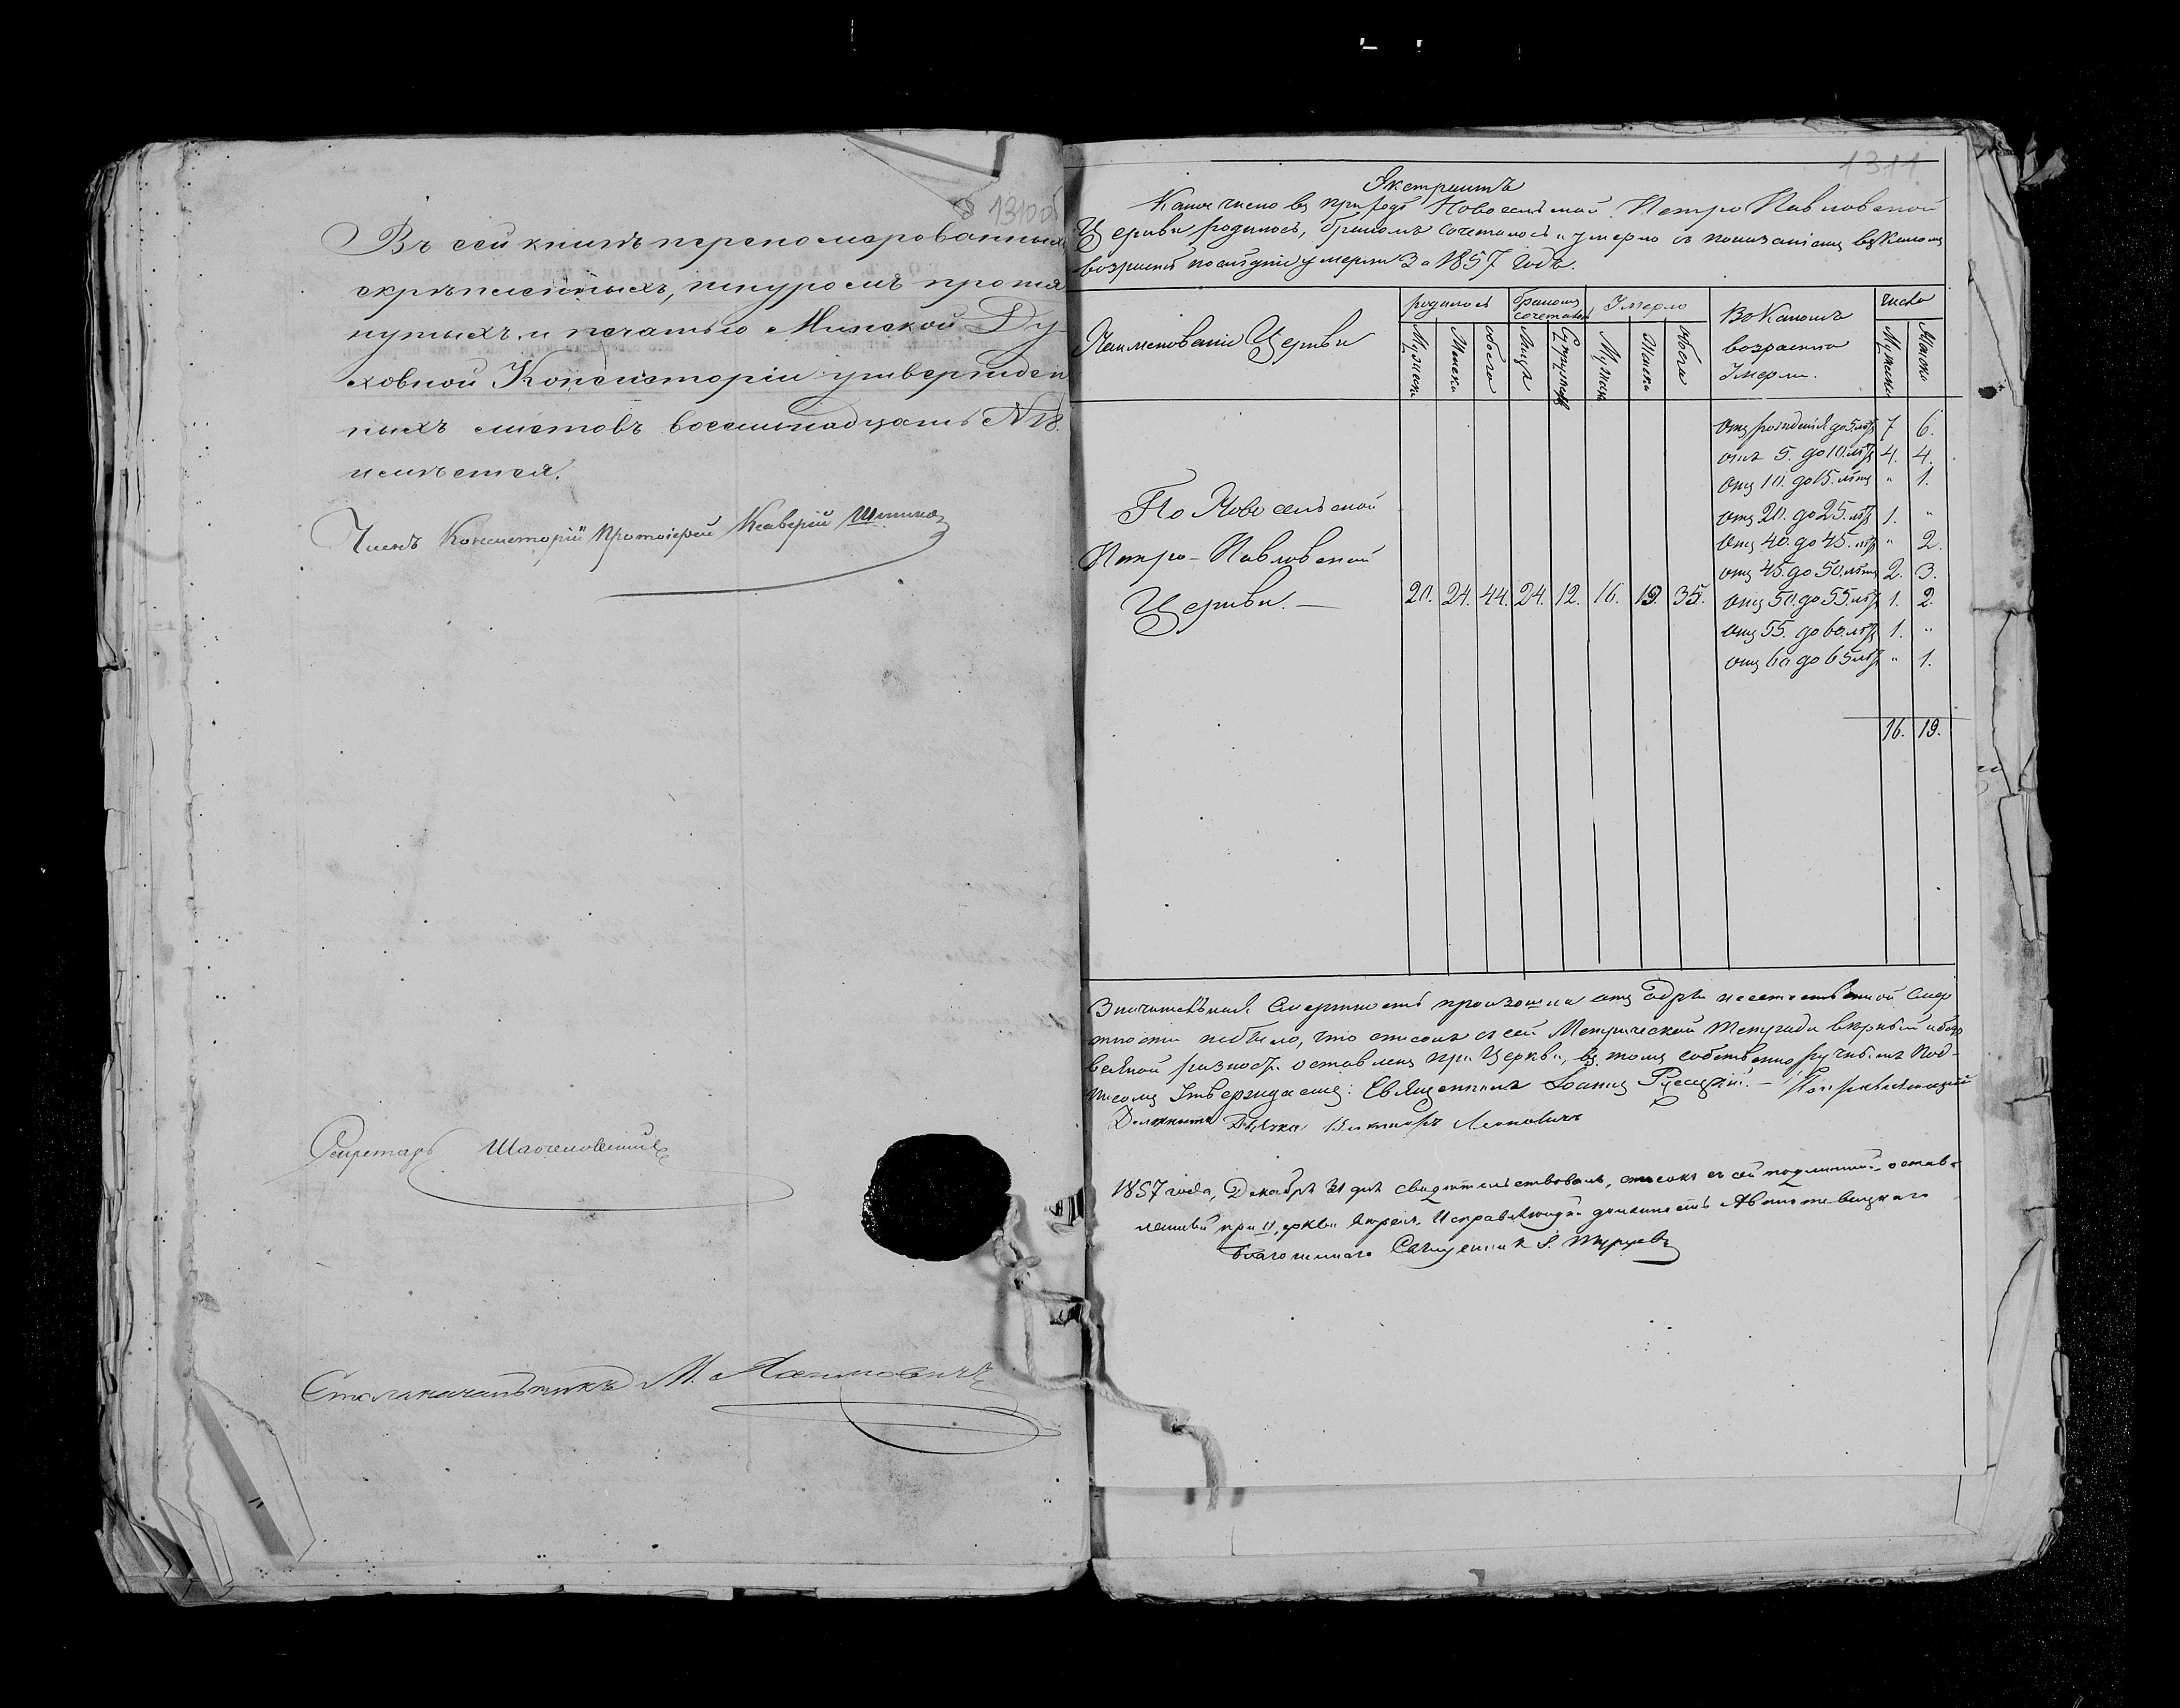 1310об
Въ сей книгѣ перепомерованныхъ
скрѣпленныхъ, шнуромъ протя
нутыхъ и печатью Минской Ду-
ховной Консисторіи утвержден
ныхъ листовъ восемнадцать №18.
имѣется.
Членъ Консисторіи Протоіерей Ксаверій
Секретарь
Столоначальникъ М.
1311
Экстрактъ
Какое число въ приходѣ Новосельской Петро Павловской
Церкви родилось, бракомъ сочеталось и умерло съ показаніемъ въ Какомъ
возрастѣ послѣдніе умерли За 1857 годъ.
Наименованіе Церкви
родилось
Мужеска
Женска
обоего
бракомъ сочеталось
Лицъ
Супружествъ
Умерло
Мужеска
Женска
обоего
Въ Какомъ
возрастѣ
Умерли.
число
Мужеска
Женска
По Новосельской
Петро-Павловской
Церкви. — 20. 24. 44. 24. 12. 16. 19. 35.
отъ рожденія до 5. лѣтъ 7 6.
отъ 5. до 10. лѣтъ 4. 4.
отъ 10. до 15. лѣтъ " 1.
отъ 20. до 25. лѣтъ 1. "
отъ 40. до 45. лѣтъ " 2.
отъ 45. до 50. лѣтъ 2. 3.
отъ 50. до 55. лѣтъ 1. 2.
отъ 55. до 60. лѣтъ 1. "
отъ 60 до 65 лѣтъ " 1.
16. 19.
Значительная Смертность произошла отъ неестественной Смер
тности небыло, что списокъ съ сей Метрической Тетради вѣрный и безъ
всякой разности оставленъ при Церкви, въ томъ собственноручнымъ Под-
писомъ Утверждаемъ: Священникъ Іоаннъ — Исправляющій
Должность Дьячка Викторъ Леоновичъ
1857 года, Декабря 31 дня свидѣтельствовалъ, списокъ съ сей подлинный остав-
ленный при Церкви вѣренъ. Исправляющій должность
Благочиннаго Священникъ І.